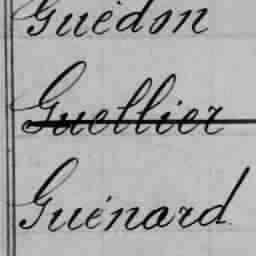 Guédon
Guellier
Guénard